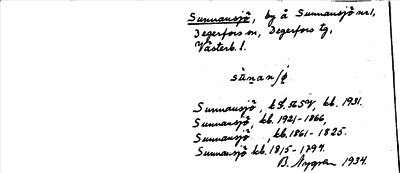 Sunnansjö, by å Sunnansjö nr 1,
Degerfors sn, Degerfors tg,
Västerb. l.
Sunnansjö, kb. 1931.
Sunnansjö, kb. 1921-1866,
Sunnansjö, kb. 1861-1825.
Sunnansjö kb. 1815-1794.
B. Nygren 1934.